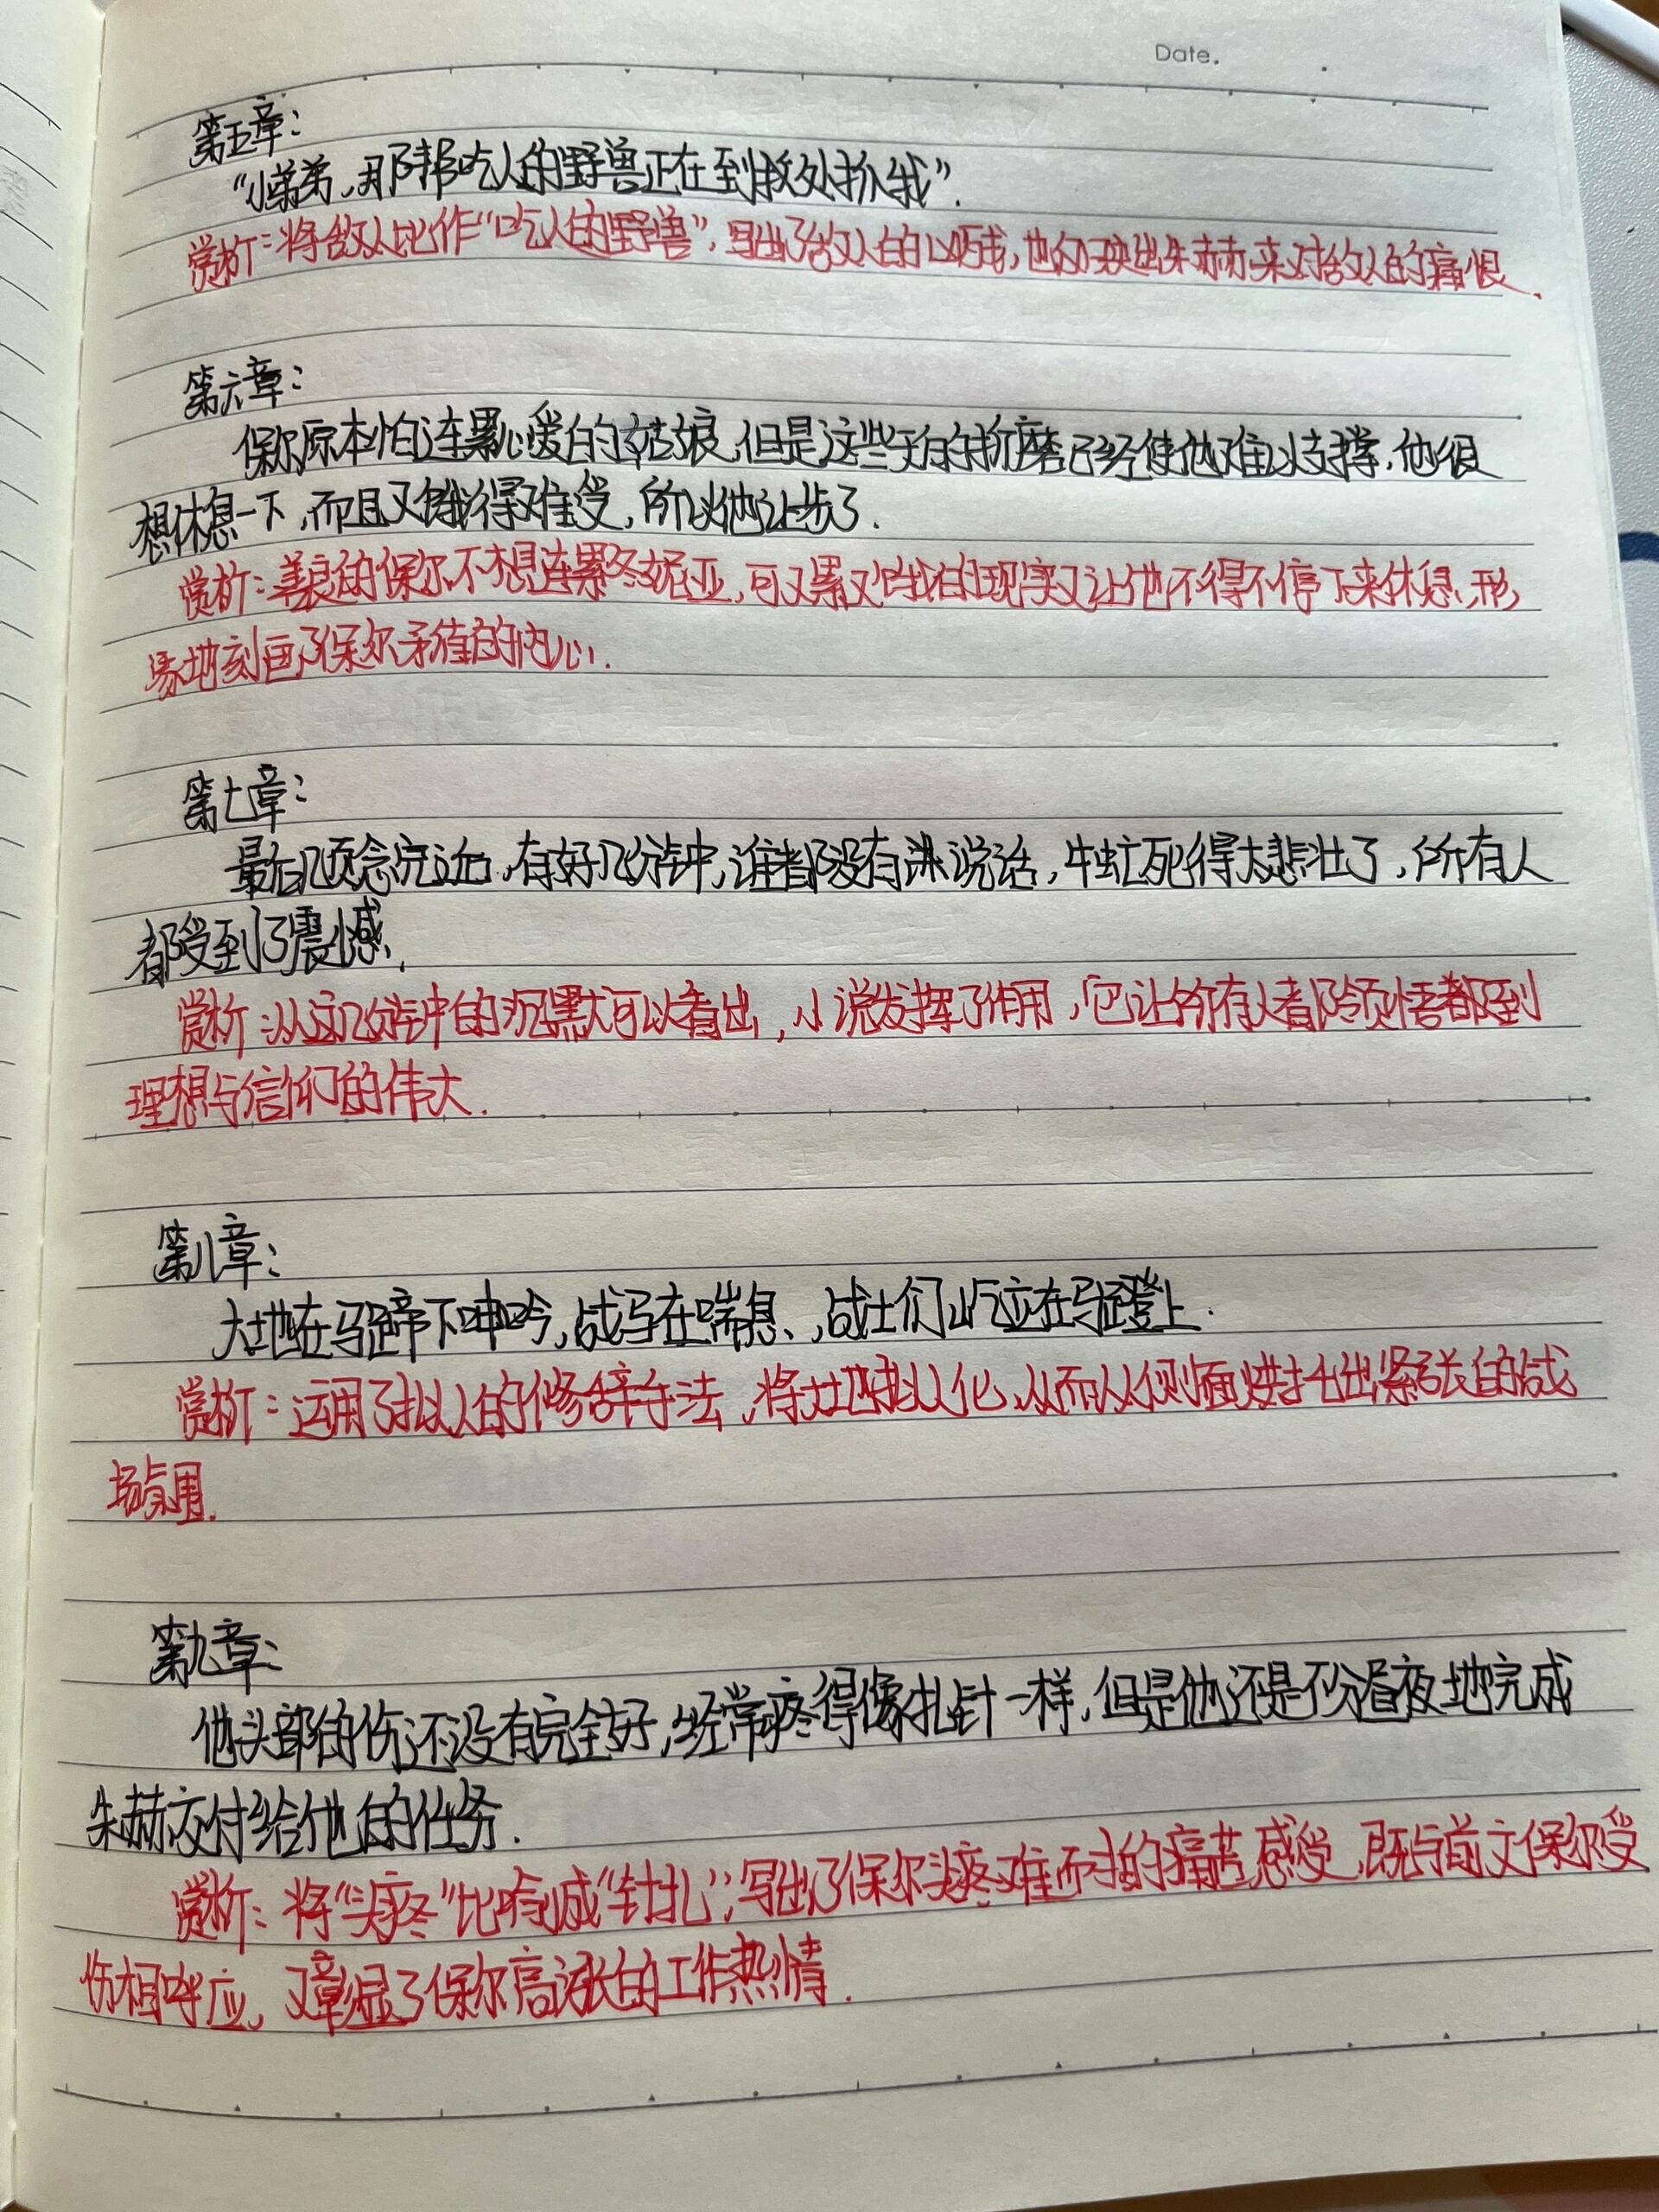 Date.
第五章:
“小弟弟,那帮吃人的野兽正在到处抓我”.
赏析:将敌人比作“吃人的野兽”,写出了敌人的凶残,也反映出朱赫来对敌人的痛恨.
第六章:
保尔原本怕连累心爱的姑娘,但是这些天的折磨已经使他难以支撑,他很
想休息一下,而且又饿得难受,所以他让步了.
赏析:善良的保尔不想连累冬妮亚,可又累又饿的现实又让他不得不停下来休息,形
象地刻画了保尔矛盾的内心.
第七章:
最后几页念完后,有好几分钟,谁都没有说话,牛虻死得太悲壮了,所有人
都受到了震憾.
赏析:从这几分钟的沉默可以看出,小说发挥了作用,它让所有人都领悟都到
理想与信仰的伟大.
第八章:
大地在马蹄下呻吟,战马在喘息、,战士们屹立在马蹬上.
赏析:运用了拟人的修辞手法,将大地拟人化,从而从侧面烘托出紧张的战
场氛围.
第九章:
他头部的伤还没有完全好,经常疼得像扎针一样,但是他还是不分昼夜地完成
朱赫交付给他的任务.
赏析:将“头疼”比喻成“针扎”,写出了保尔头疼难耐的痛苦感受,既与前文保尔受
伤相呼应,又彰显了保尔高涨的工作热情.